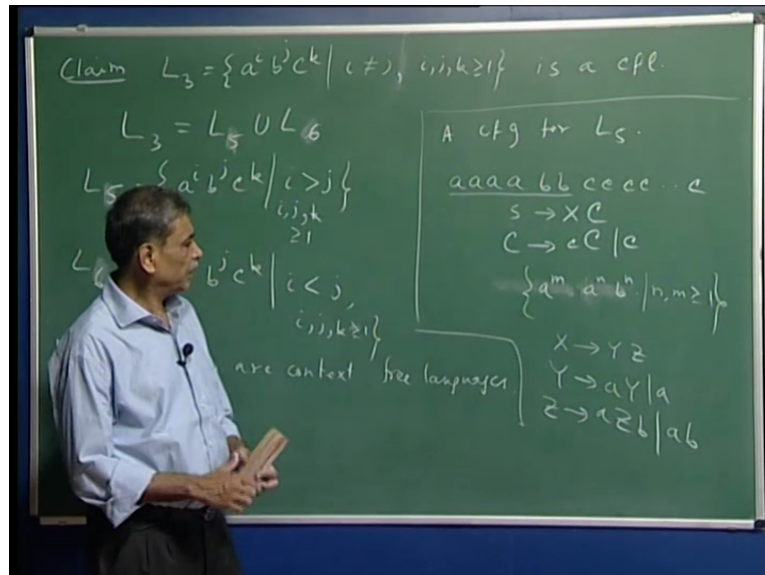 Claim L₃ = { aⁱ bʲ cᵏ | i ≠ j, i,j,k ≥ 1 } is a cfl.
L₃ = L₅ ∪ L₆
L₅ = { aⁱ bʲ cᵏ | i > j }
i,j,k
≥ 1
L₆ bʲ cᵏ | i < j,
i,j,k ≥ 1 }
are context free languages.
A cfg for L₅.
aaaa bb cccc .. c
S → X C
C → cC | c
{ aᵐ aⁿ bⁿ | n, m ≥ 1 }
X → Y Z
Y → aY | a
Z → aZb | ab